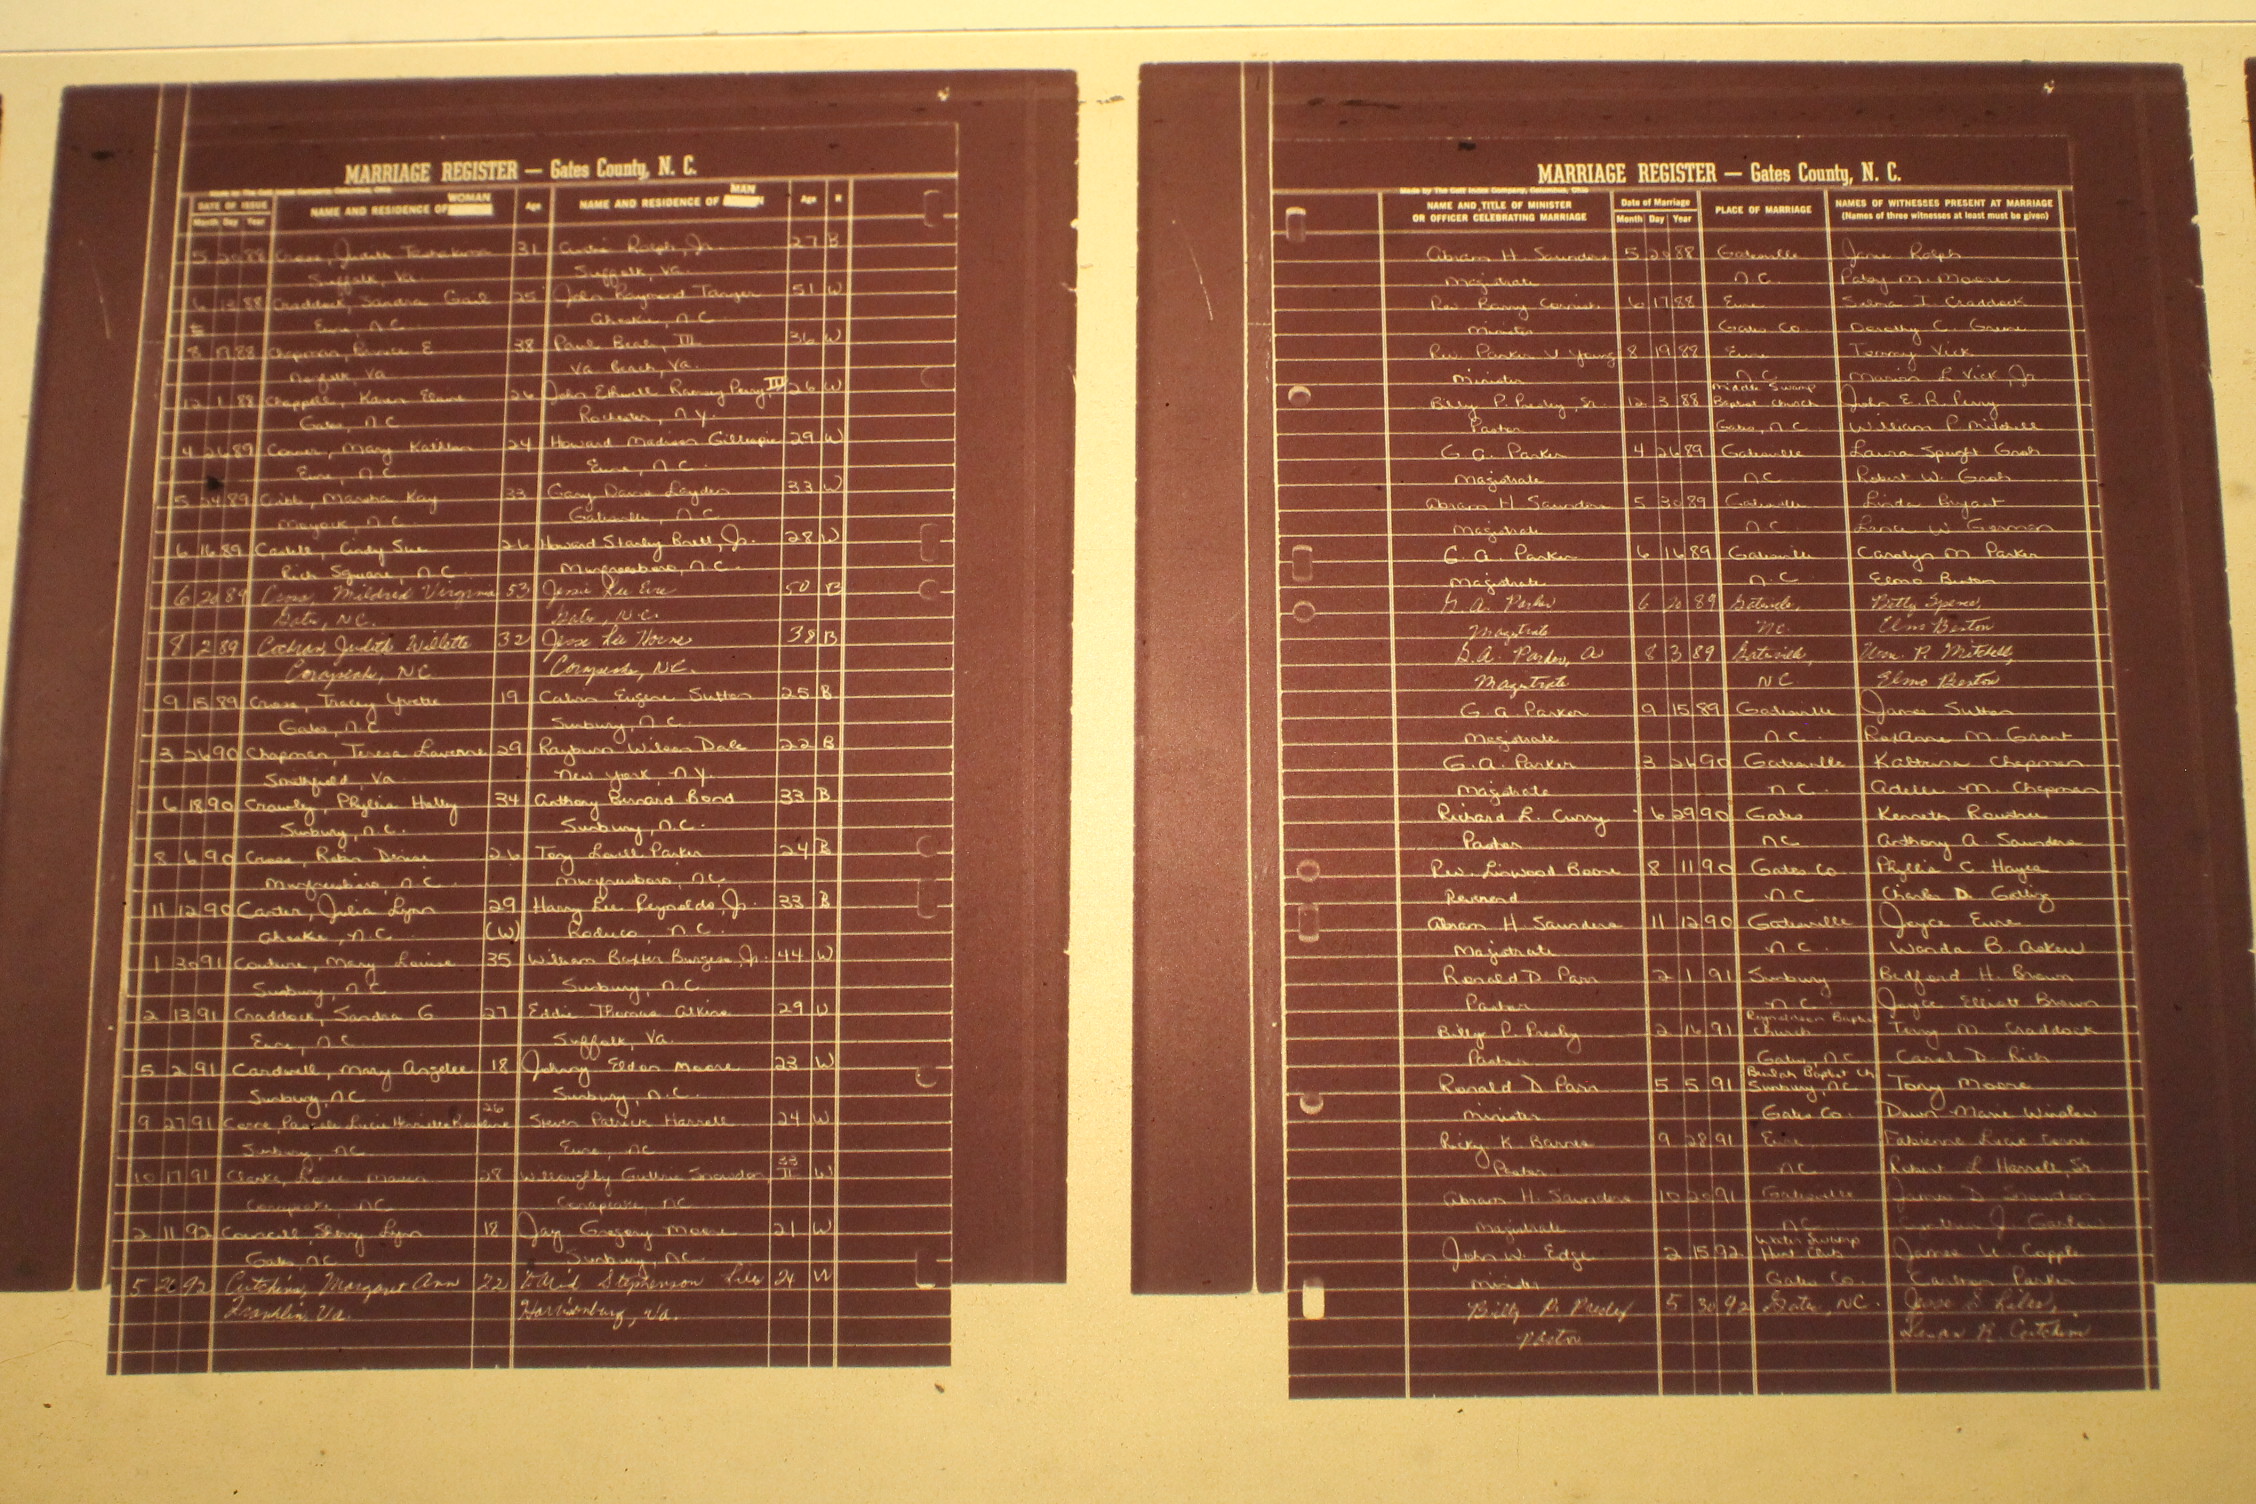 MARRIAGE REGISTER — Gates County, N. C.
WOMAN MAN
DATE OF ISSUE NAME AND RESIDENCE OF Age NAME AND RESIDENCE OF Age R
Month Day Year
5 20 88 Cross, Judith 31 Curtis Ralph, Jr. 27 B
Suffolk, Va. Suffolk, Va.
6 88 Craddock, Sandra Gail 25 John Raymond 51 W
Eure, N.C. Ahoskie, N.C.
8 17 88 Chapman, E 38 Paul Beal, III 36 W
Norfolk, Va Va Beach, Va.
12 1 88 Chappell, Karen Elaine 26 John Ramsey Perry, III 26 W
Gates, N.C. Rochester, N.Y.
4 26 89 Mary Kathleen 24 Howard Madison Gillespie 29 W
Eure, N.C. Eure, N.C.
5 24 89 Marsha Kay 33 Gary Layden 33 W
Moyock, N.C. Gatesville, N.C.
6 16 89 Cindy Sue 26 Howard Stanley Jr. 28 W
Rich Square, N.C. Murfreesboro, N.C.
6 20 89 Cross, Mildred Virginia 53 Jessie Lee Eure 50 B
Gates, N.C. Gates, N.C.
8 2 89 Cochran, Judith Willette 32 Jesse Lee 38 B
Corapeake, NC Corapeake, N.C.
9 15 89 Cross, Tracey Yvette 19 Calvin Eugene Sutton 25 B
Gates, N.C. Sunbury, N.C.
3 26 90 Chapman, Teresa Laverne 29 Rayburn Wilson Dale 22 B
Smithfield, Va New York, N.Y.
6 18 90 Phyllis 34 Anthony Bernard Bond 33 B
Sunbury, N.C. Sunbury, N.C.
8 6 90 Cross, Robin Denise 26 Tony Parker 24 B
Murfreesboro, N.C. Murfreesboro, N.C.
11 12 90 Carter, Julia Lynn 29 Harry Lee Reynolds, Jr. 33 B
Ahoskie, N.C. (W) Roduco, N.C.
1 30 91 Couture, Mary Louise 35 William Baxter Burgess, Jr. 44 W
Sunbury, N.C. Sunbury, N.C.
2 13 91 Craddock, Sandra G 27 Eddie Thomas Atkins 29 W
Eure, N.C. Suffolk, Va.
5 2 91 Cardwell, Mary Angelee 18 Johnny Eldon Moore 23 W
Sunbury, NC Sunbury, N.C.
9 27 91 26 Steven Patrick Harrell 24 W
Sunbury, NC Eure, NC
10 17 91 28 Willoughby Guthrie Snowden II 33 W
Corapeake, NC Corapeake, NC
2 11 92 Lynn 18 Jay Gregory Moore 21 W
Gates, NC Sunbury, NC
5 92 Cutchins, Margaret Ann 22 David Stephenson Liles 24 W
Franklin, Va. Harrisonburg, Va.
MARRIAGE REGISTER — Gates County, N. C.
Made by The Cott Index Company, Columbus, Ohio
NAME AND TITLE OF MINISTER OR OFFICER CELEBRATING MARRIAGE Date of Marriage PLACE OF MARRIAGE NAMES OF WITNESSES PRESENT AT MARRIAGE
Month Day Year (Names of three witnesses at least must be given)
Abram H. Saunders 5 20 88 Gatesville Ralph
Magistrate N.C. Patsy M. Moore
Rev. Barry 6 17 88 Eure Selma T. Craddock
Minister Gates Co. Dorothy C. Greene
Rev. Parker V Young 8 19 88 Eure Tommy Vick
Minister N.C. Marion L Vick, Jr.
Billy P. Presley, Sr. 12 3 88 Middle Swamp Baptist Church John E. R. Perry
Pastor Gates, N.C. William P. Mitchell
G. A. Parker 4 26 89 Gatesville Laura Speight
Magistrate N.C. Robert W.
Abram H Saunders 5 30 89 Gatesville Linda Bryant
Magistrate N.C. Lance W. German
G. A. Parker 6 16 89 Gatesville Carolyn M. Parker
Magistrate N.C. Elmo Benton
G. A. Parker 6 20 89 Gatesville, Betty Spence,
Magistrate NC. Elmo Benton
G. A. Parker, 8 3 89 Gatesville, Wm. P. Mitchell,
Magistrate NC Elmo Benton
G. A. Parker 9 15 89 Gatesville James Sutton
Magistrate N.C. RoxAnne M. Grant
G. A. Parker 3 26 90 Gatesville Kattrina Chapman
Magistrate N.C. Adelle M. Chapman
Richard L. Curry 6 29 90 Gates Kenneth Rountree
Pastor NC Anthony A. Saunders
Rev. Linwood Boone 8 11 90 Gates Co Phyllis C. Hayes
Reverend N.C. Charles D. Gatling
Abram H. Saunders 11 12 90 Gatesville Joyce Eure
Magistrate N.C. Wanda B. Askew
Ronald D. Parr 2 1 91 Sunbury Bedford H. Brown
Pastor N.C. Joyce Elliott Brown
Billy P. Presley 2 16 91 Reynoldson Baptist Church Terry M. Craddock
Pastor Gates, N.C. Carol D. Rich
Ronald D. Parr 5 5 91 Beulah Baptist Ch Sunbury, NC Tony Moore
Minister Gates Co. Dawn Marie Winslow
Ricky K. Barnes 9 28 91 Eure, Fabienne
Pastor NC Robert L Harrell, Sr.
Abram H. Saunders 10 20 91 Gatesville James D Snowden
Magistrate NC
John W. Edge 2 15 92 Hunt Club James
Minister Gates Co. Carlton Parker
Billy P. Presley 5 30 92 Gates, NC. Jesse S Liles,
Pastor R. Cutchins